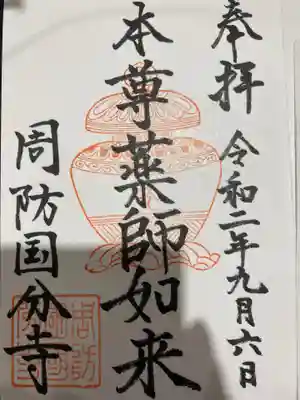 奉拝 令和二年九月六日
本尊薬師如来
周防国分寺